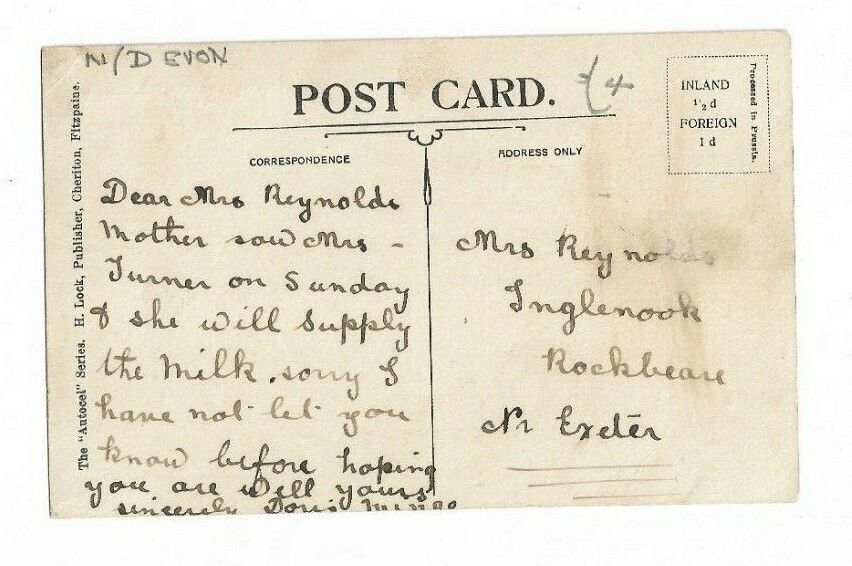 N/DEVON
POST CARD.
£4
INLAND
½d
FOREIGN
1d
Processed in Prussia.
CORRESPONDENCE
ADDRESS ONLY
The "Autocel" Series. H. Lock, Publisher, Cheriton, Fitzpaine.
Dear Mrs Reynolds
Mother saw Mrs -
Turner on Sunday
& she will supply
the milk. sorry I
have not let you
know before hoping
you are well yours
sincerely Doris
Mrs Reynolds
Inglenook
Rockbeare
Nr Exeter